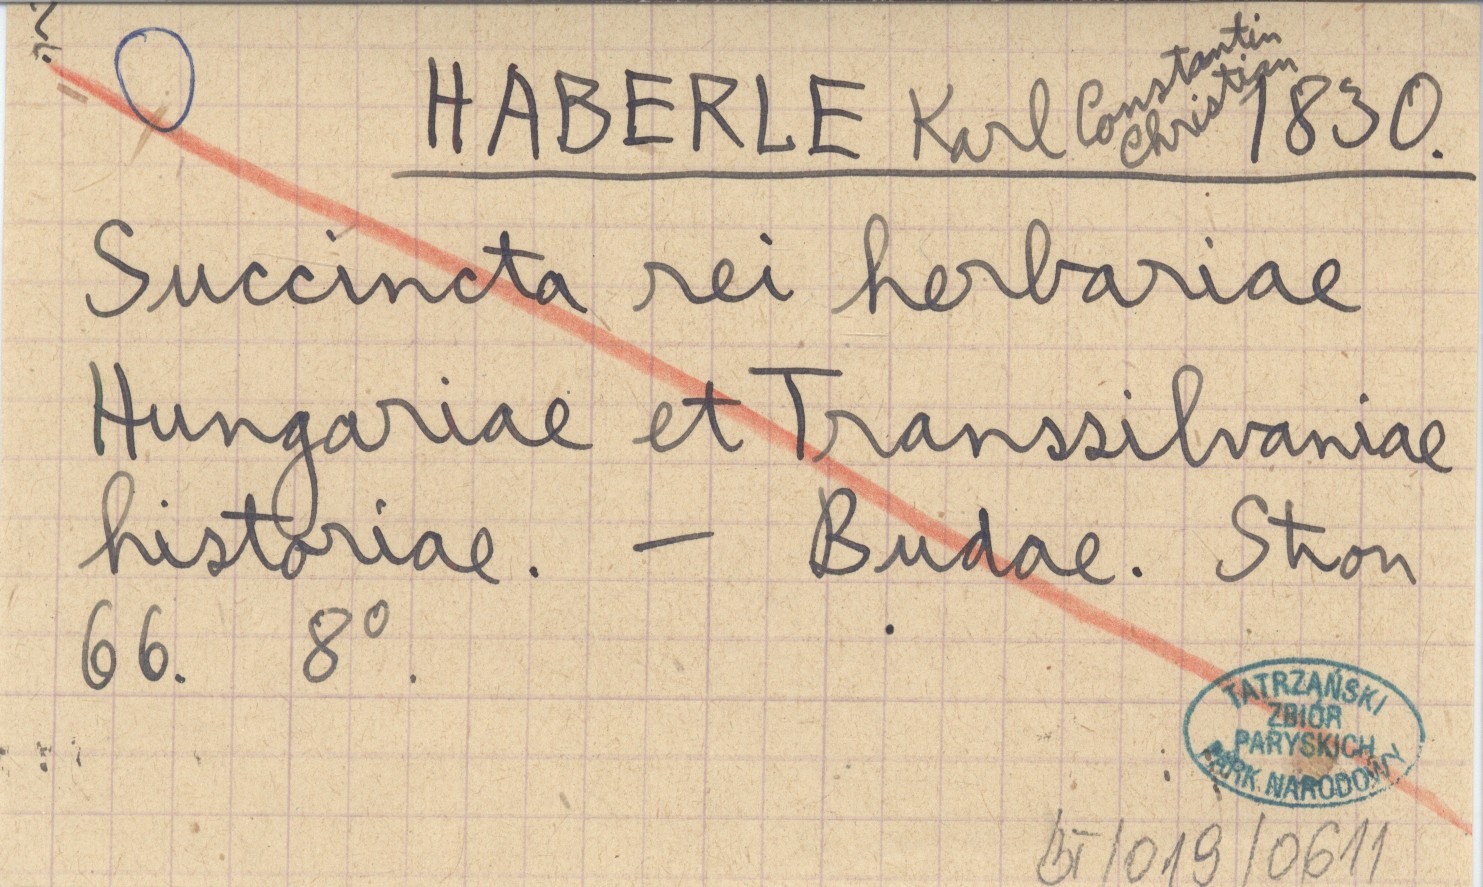 ?
HABERLE Karl Constantin Christian 1830.
Succincta rei herbariae
Hungariae et Transsilvaniae
historiae. — Budae. Stron
66. 8°.
TATRZAŃSKI
ZBIÓR
PARYSKICH
PARK NARODOWY
BT/019/0611